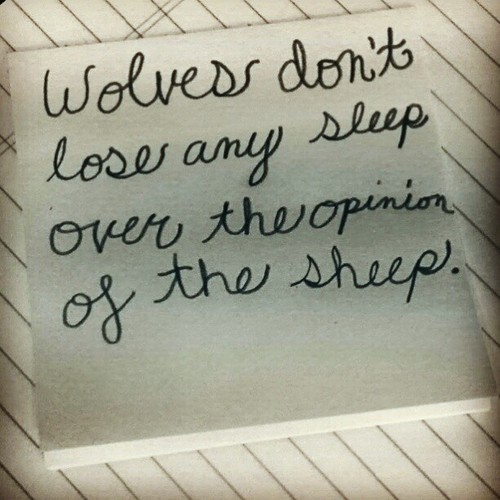 Wolves don't
lose any sleep
over the opinion
of the sheep.